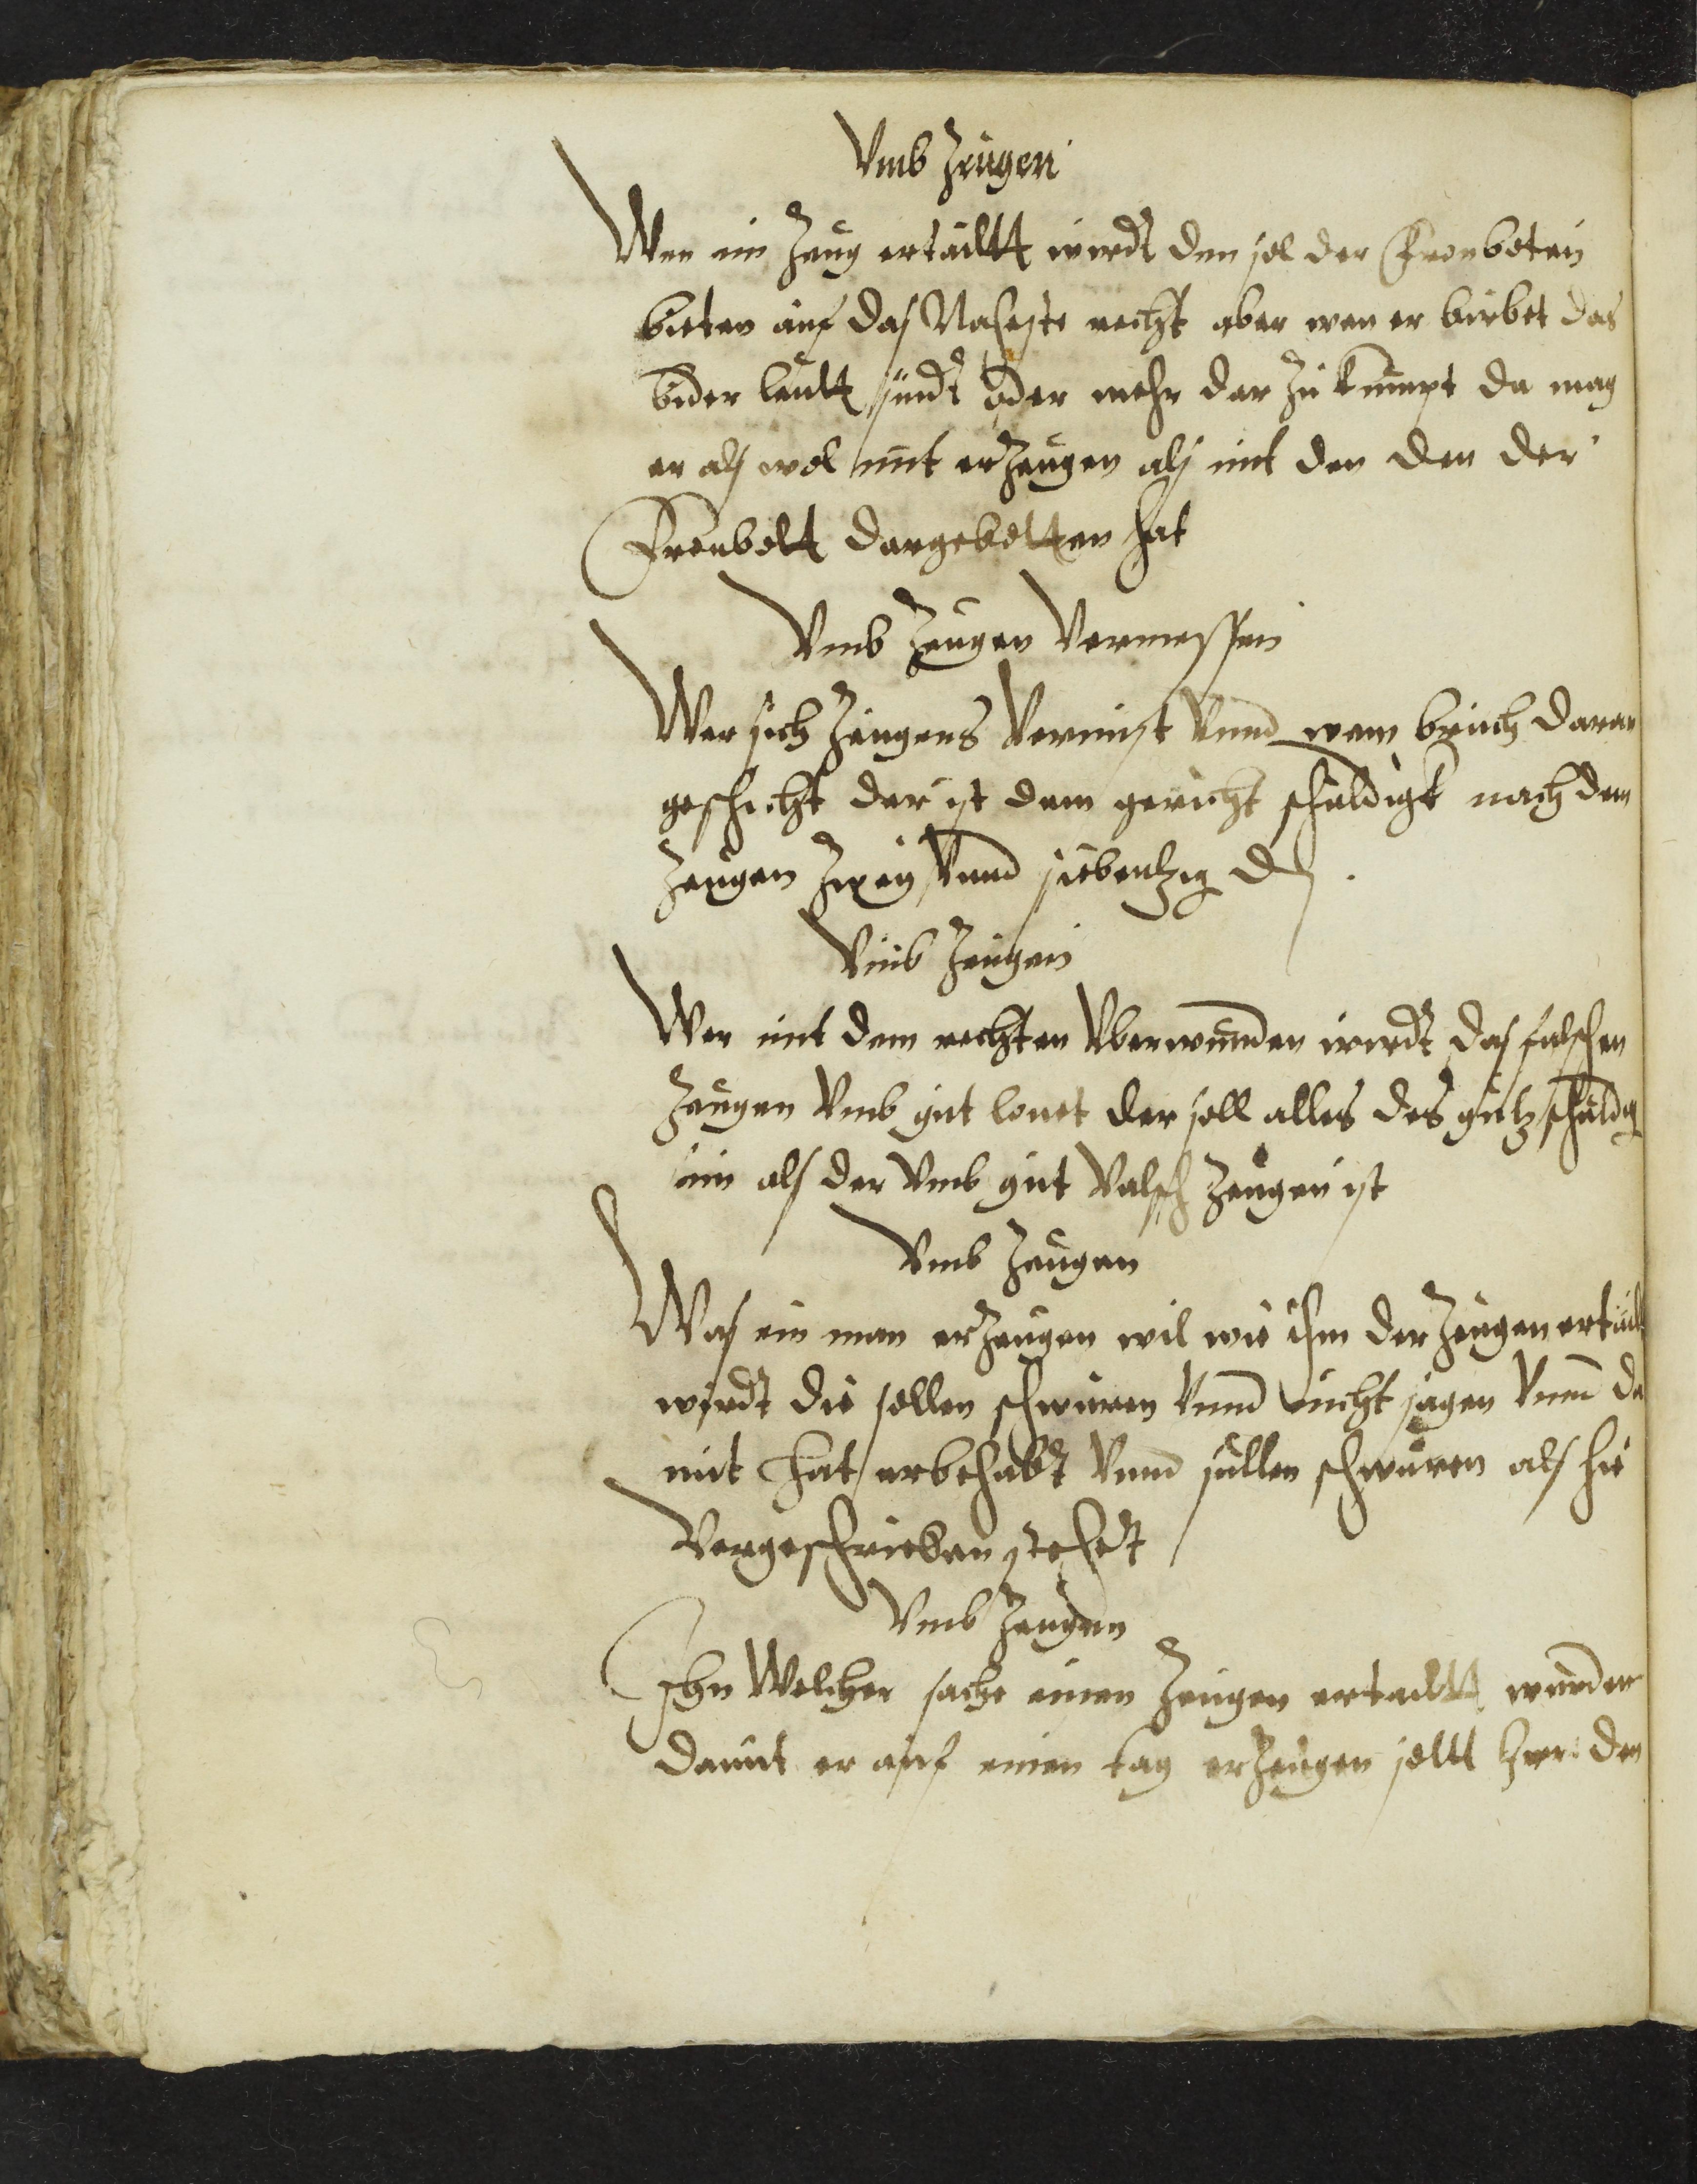 Vmb Zeugen
Wen ein Zeug ertailtt wirdt den sol der Fronboten
bieten auf das Naheste recht aber wen er birbet das
bider leutt sindt oder mehr dar zu kumpt da mag
er als wol mit erzeugen als mit den den der
Fronbott dargebotten hat
Vmb Zeugen Vermessen
Wer sich Zeugens Vermist Vnnd wem bruch daran
geschicht der ist dem gericht schuldigk nach dem
Zeugen Zwey Vnnd siebentzig d
Vmb Zeugen
Wer mit dem rechten Vberwunnden wirdt das falschen
Zeugen Vmb gut lonet der soll alles des gutz schuldig
sein als der Vmb gut Valsch Zeugen ist
Vmb Zeugen
Was ein man erzeugen wil wie ihm der Zeugen ertailt
wirdt die sollen schwüren Vnnd nicht sagen Vnnd da
mit hat er behabt Vnnd süllen schwüren als hie
Vorgeschrieben stehet
Vmb Zeugen
Ihn Welcher sache einen Zeugen ertailtt wurden
damit er auf einen tag erzeugen soltt den